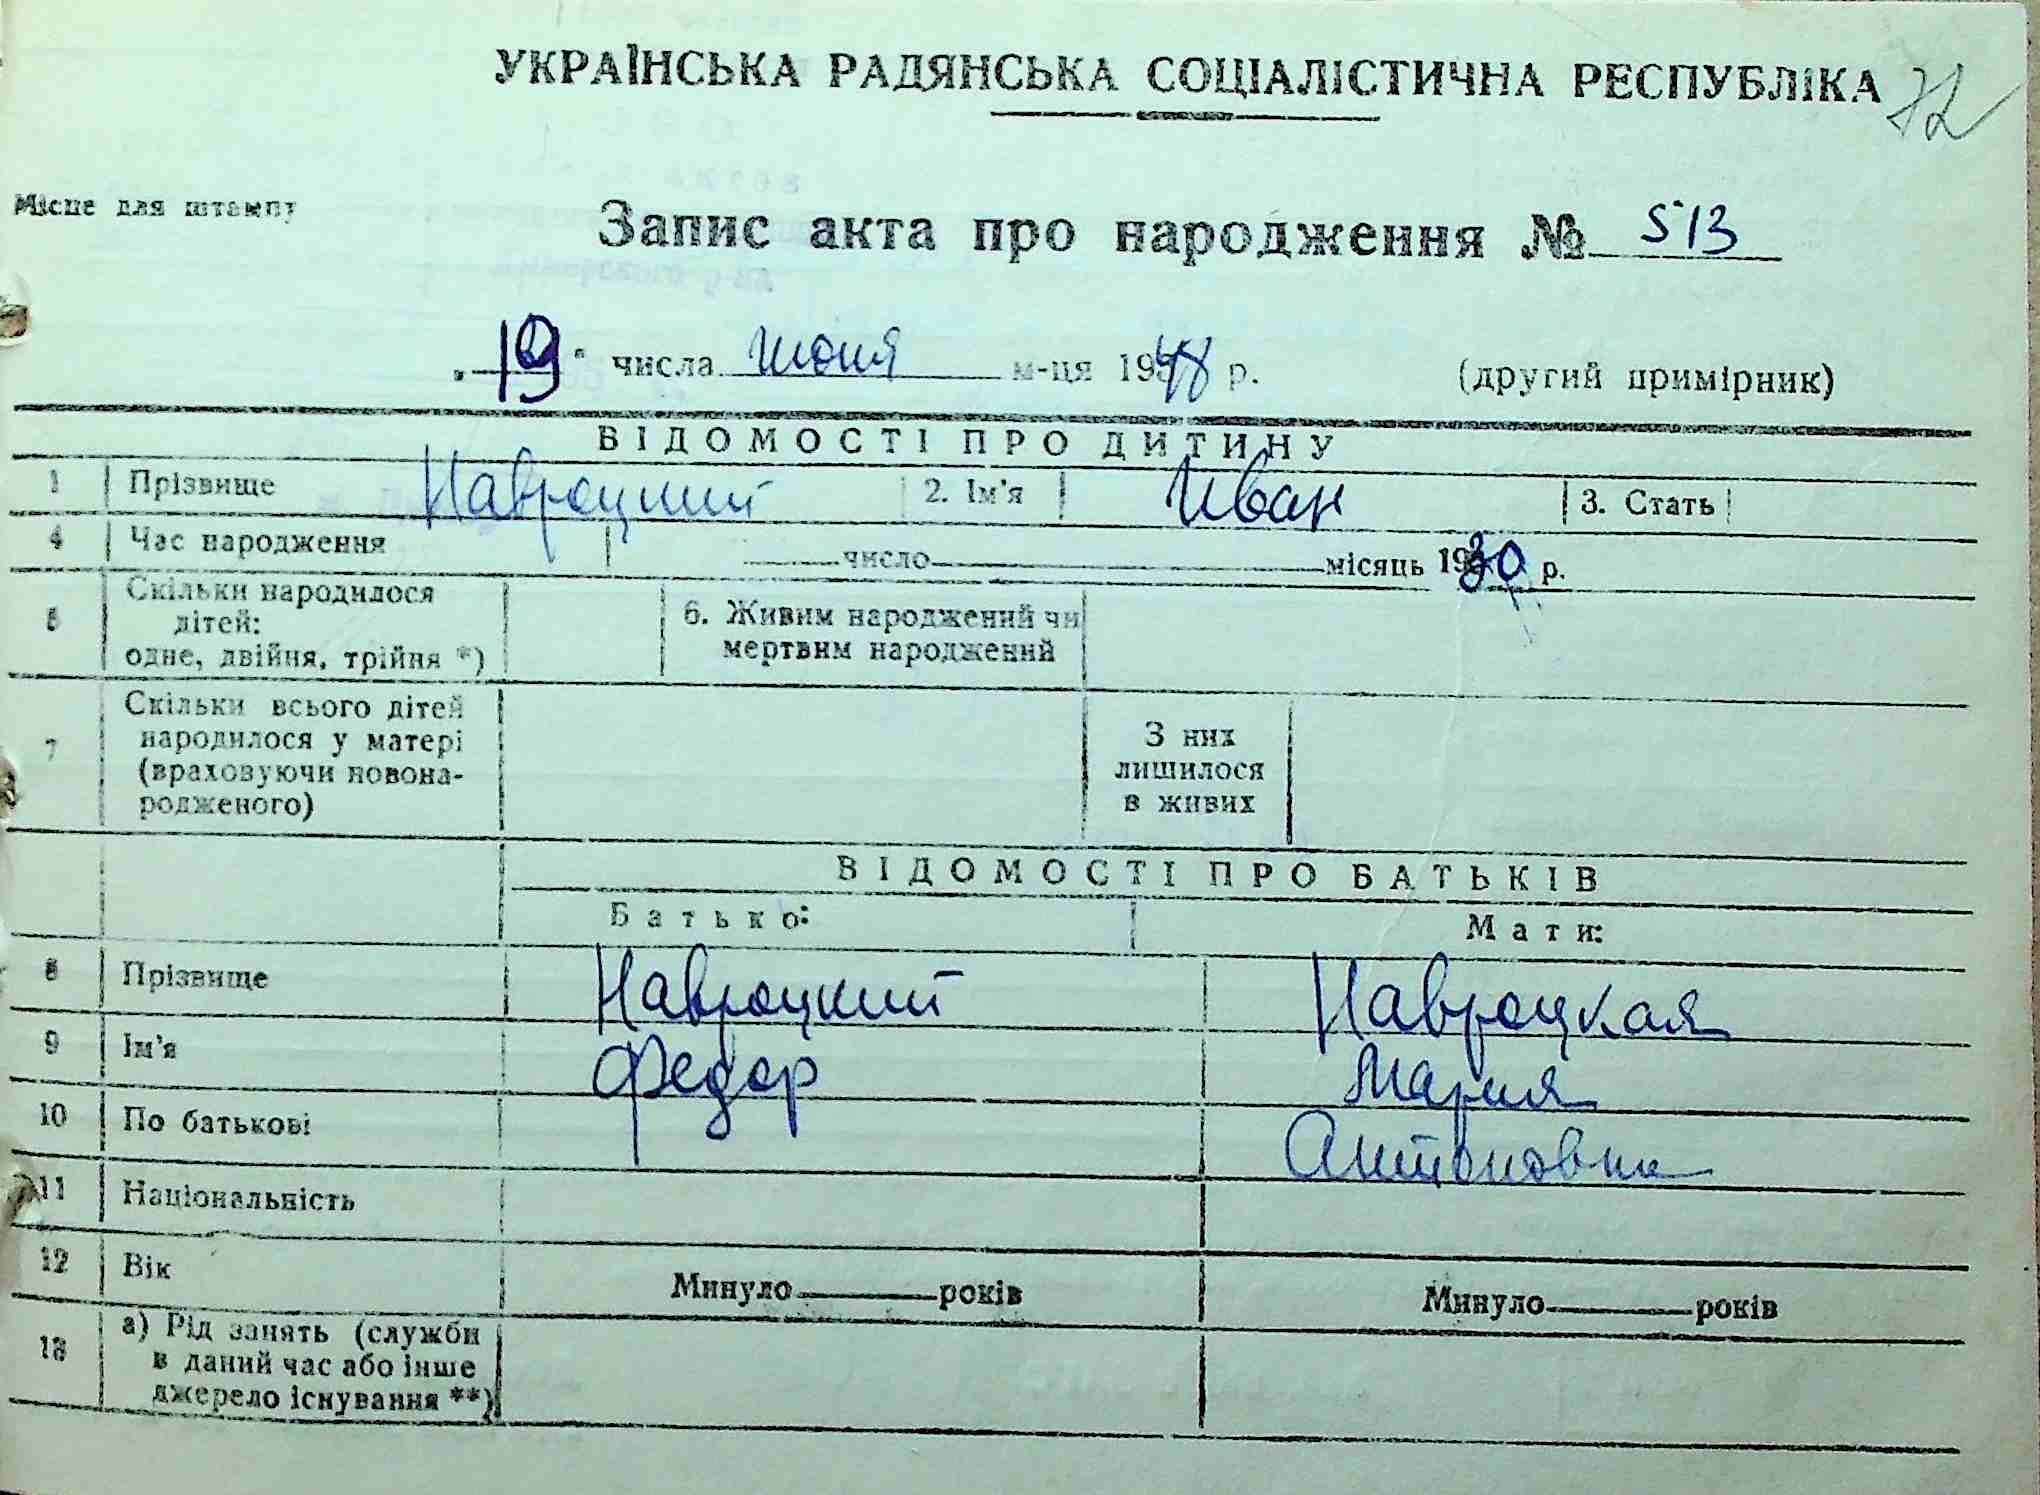 УКРАЇНСЬКА РАДЯНСЬКА СОЦІАЛІСТИЧНА РЕСПУБЛІКА
72
Місце для штампу
Запис акта про народження № 513
„19" числа июня м-ця 1948 р. (другий примірник)
ВІДОМОСТІ ПРО ДИТИНУ
1 Прізвище Навроцкий 2. Ім'я Иван 3. Стать
4 Час народження число місяць 1930 р.
5 Скільки народилося
дітей:
одне, двійня, трійня *)
6. Живим народжений чи
мертвим народжений
7 Скільки всього дітей
народилося у матері
(враховуючи новона-
родженого)
З них
лишилося
в живих
ВІДОМОСТІ ПРО БАТЬКІВ
Батько: Мати:
8 Прізвище Навроцкий Навроцкая
9 Ім'я Федор Мария
10 По батькові Антоновна
11 Національність
12 Вік Минуло років Минуло років
13 а) Рід занять (служби
в даний час або інше
джерело існування **)